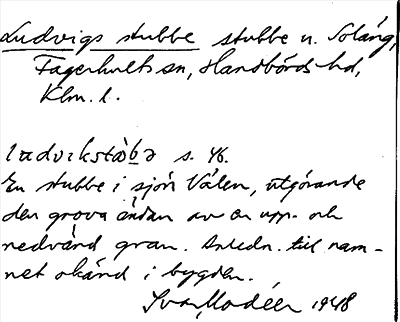 Ludvigs stubbe stubbe n. Solång,
Fagerhults sn, Handbörds hd,
Klm. l.
s. 46.
En stubbe i sjön Välen, utgörande
den grova ändan av en upp- och
nedvänd gran. Anledn. till nam-
net okänd i bygden.
Ivar Modéer 1948